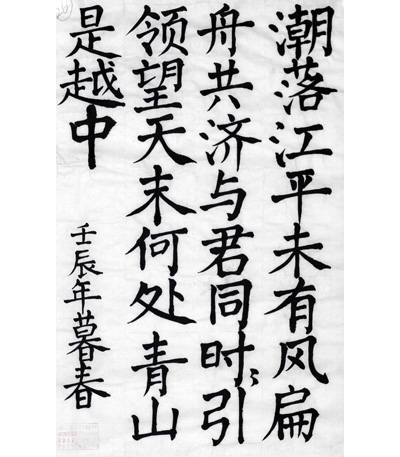 潮落江平未有风扁
舟共济与君同时〻引
领望天末何处青山
是越中
壬辰年暮春